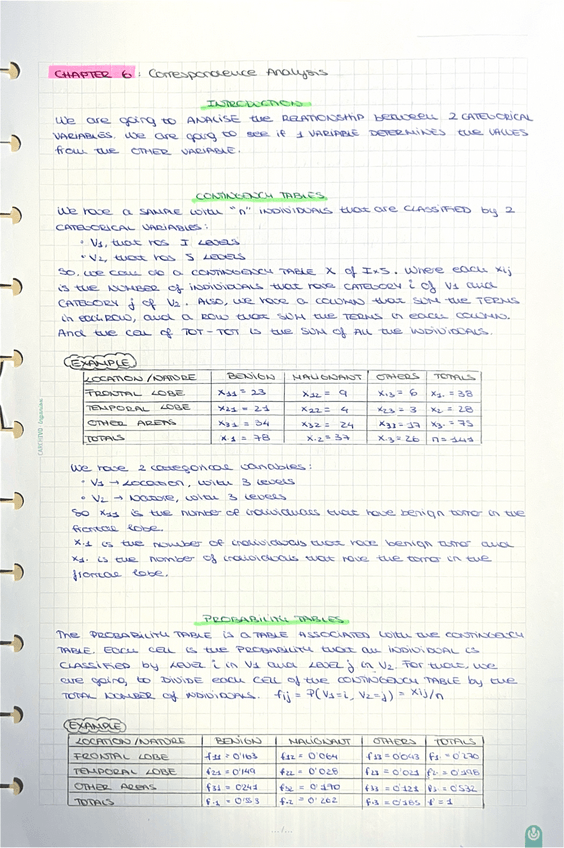 CHAPTER 6: Correspondence Analysis
INTRODUCTION
We are going to ANALISE the RELATIONSHIP between 2 CATEGORICAL
VARIABLES. We are going to see if 1 VARIABLE DETERMINES the VALUES
from the OTHER VARIABLE.
CONTINGENCY TABLES
We have a SAMPLE with "n" INDIVIDUALS that are CLASSIFIED by 2
CATEGORICAL VARIABLES:
• V1, that has I LEVELS
• V2, that has S LEVELS
So, we can do a CONTINGENCY TABLE X of I×S. Where each xij
is the NUMBER of INDIVIDUALS that have CATEGORY i of V1 and
CATEGORY j of V2. Also, we have a COLUMN that SUM the TERMS
in each ROW, and a ROW that SUM the TERMS in each COLUMN.
And the cell of TOT-TOT is the SUM of All the INDIVIDUALS.
EXAMPLE
LOCATION/NATURE BENIGN MALIGNANT OTHERS TOTALS
FRONTAL LOBE x11 = 23 x12 = 9 x13 = 6 x1. = 38
TEMPORAL LOBE x21 = 21 x22 = 4 x23 = 3 x2. = 28
OTHER AREAS x31 = 34 x32 = 24 x33 = 17 x3. = 75
TOTALS x.1 = 78 x.2 = 37 x.3 = 26 n = 141
We have 2 categorical variables:
• V1 → Location, with 3 levels
• V2 → Nature, with 3 levels
So x11 is the number of individuals that have benign tumor in the
frontal lobe.
x.1 is the number of individuals that have benign tumor and
x1. is the number of individuals that have the tumor in the
frontal lobe.
PROBABILITY TABLES
The PROBABILITY TABLE is a TABLE ASSOCIATED with the CONTINGENCY
TABLE. EACH CELL is the PROBABILITY that AN INDIVIDUAL is
CLASSIFIED by LEVEL i in V1 and LEVEL j in V2. For that, we
are going to DIVIDE EACH CELL of the CONTINGENCY TABLE by the
TOTAL NUMBER of INDIVIDUALS. fij = P(V1=i, V2=j) = xij/n
EXAMPLE
LOCATION/NATURE BENIGN MALIGNANT OTHERS TOTALS
FRONTAL LOBE f11 = 0'163 f12 = 0'064 f13 = 0'043 f1. = 0'270
TEMPORAL LOBE f21 = 0'149 f22 = 0'028 f23 = 0'021 f2. = 0'198
OTHER AREAS f31 = 0'241 f32 = 0'190 f33 = 0'121 f3. = 0'532
TOTALS f.1 = 0'553 f.2 = 0'262 f.3 = 0'185 f = 1